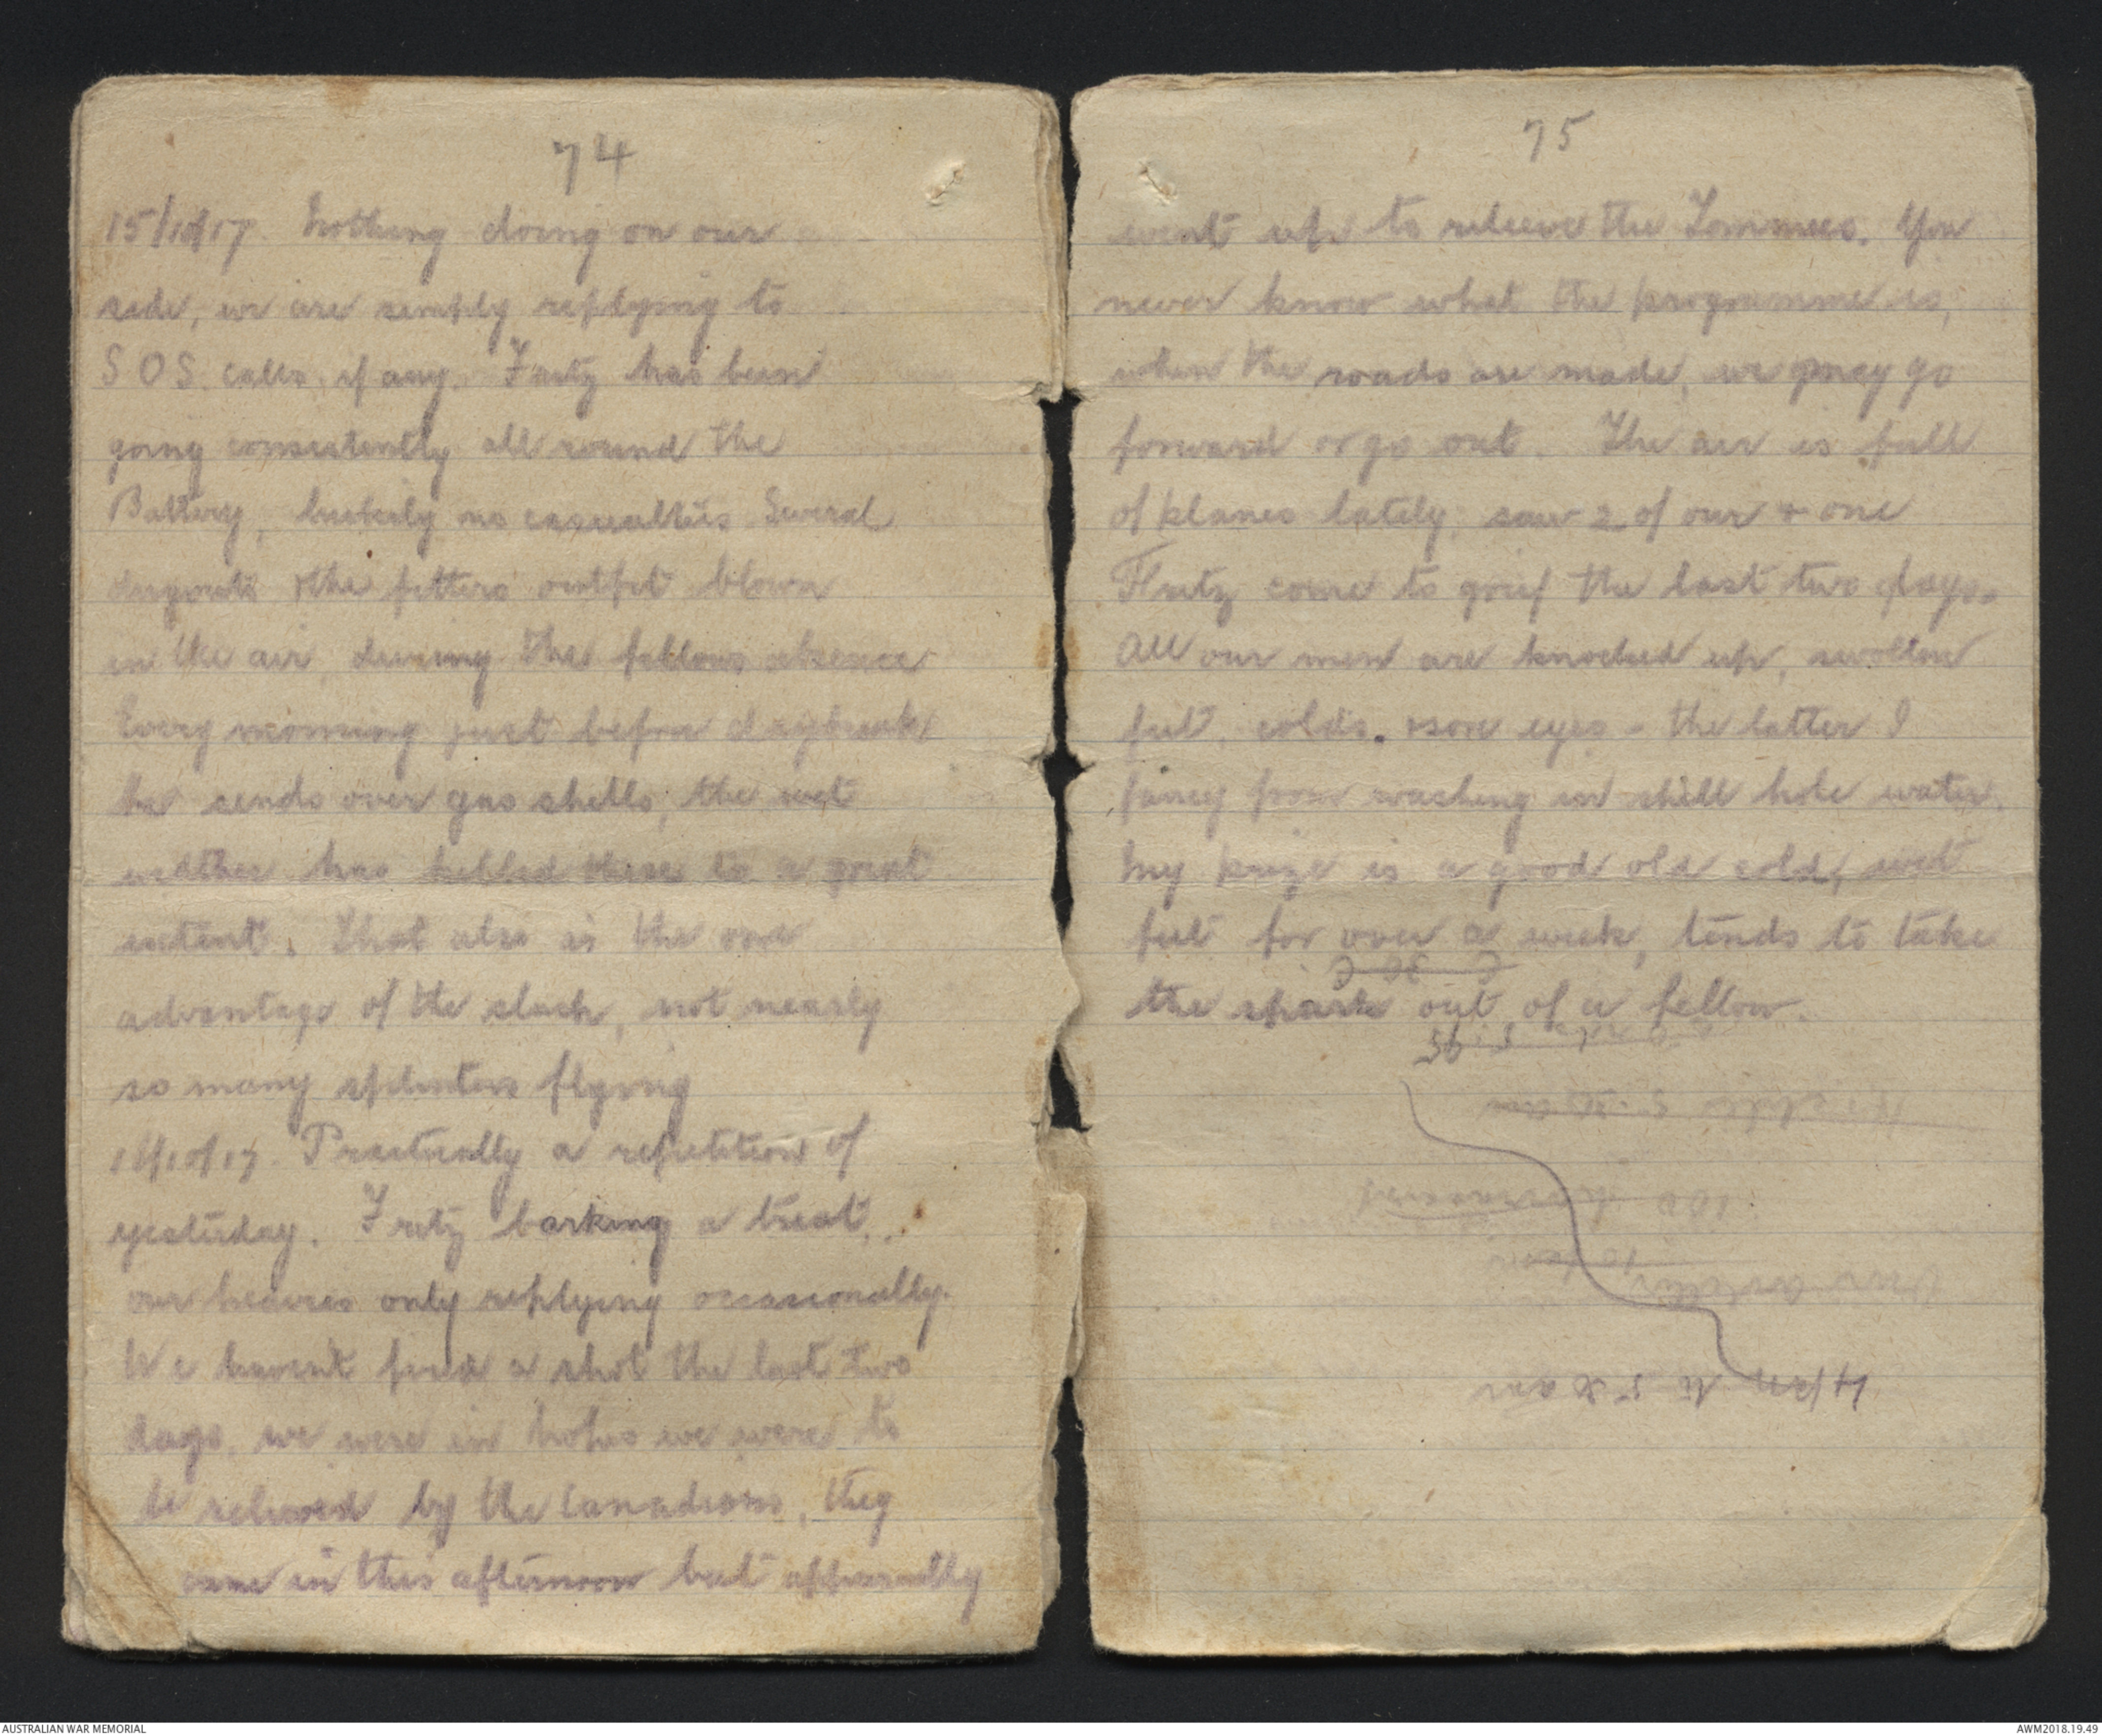 74
15/10/17. Nothing doing on our
side, we are simply replying to
S O S. calls, if any. Fritz has been
going consistently all round the
Battery, luckily no casualties. Several
dugouts & the fitters outfit blown
in the air, during the fellows absence
Every morning just before daybreak
he sends over gas shells, the wet
weather has killed these to a great
extent. That also is the one
advantage of the slush, not nearly
so many splinters flying
16/10/17. Practically a repetition of
yesterday. Fritz barking a treat,
our heavies only replying occasionally.
We havent fired a shot the last two
days, we were in hopes we were to
be relieved by the Canadians, they
came in this afternoon but apparently
75
went up to relieve the Tommies. You
never know what the programme is,
when the roads are made, we may go
forward or go out. The air is full
of planes lately, saw 2 of our & one
Fritz come to grief the last two days.
All our men are knocked up, swollen
feet, colds. & sore eyes - the latter I
fancy from washing in shell hole water.
My prize is a good old cold, wet
feet for over a week, tends to take
the spark out of a fellow.
AUSTRALIAN WAR MEMORIAL
AWM2018.19.49